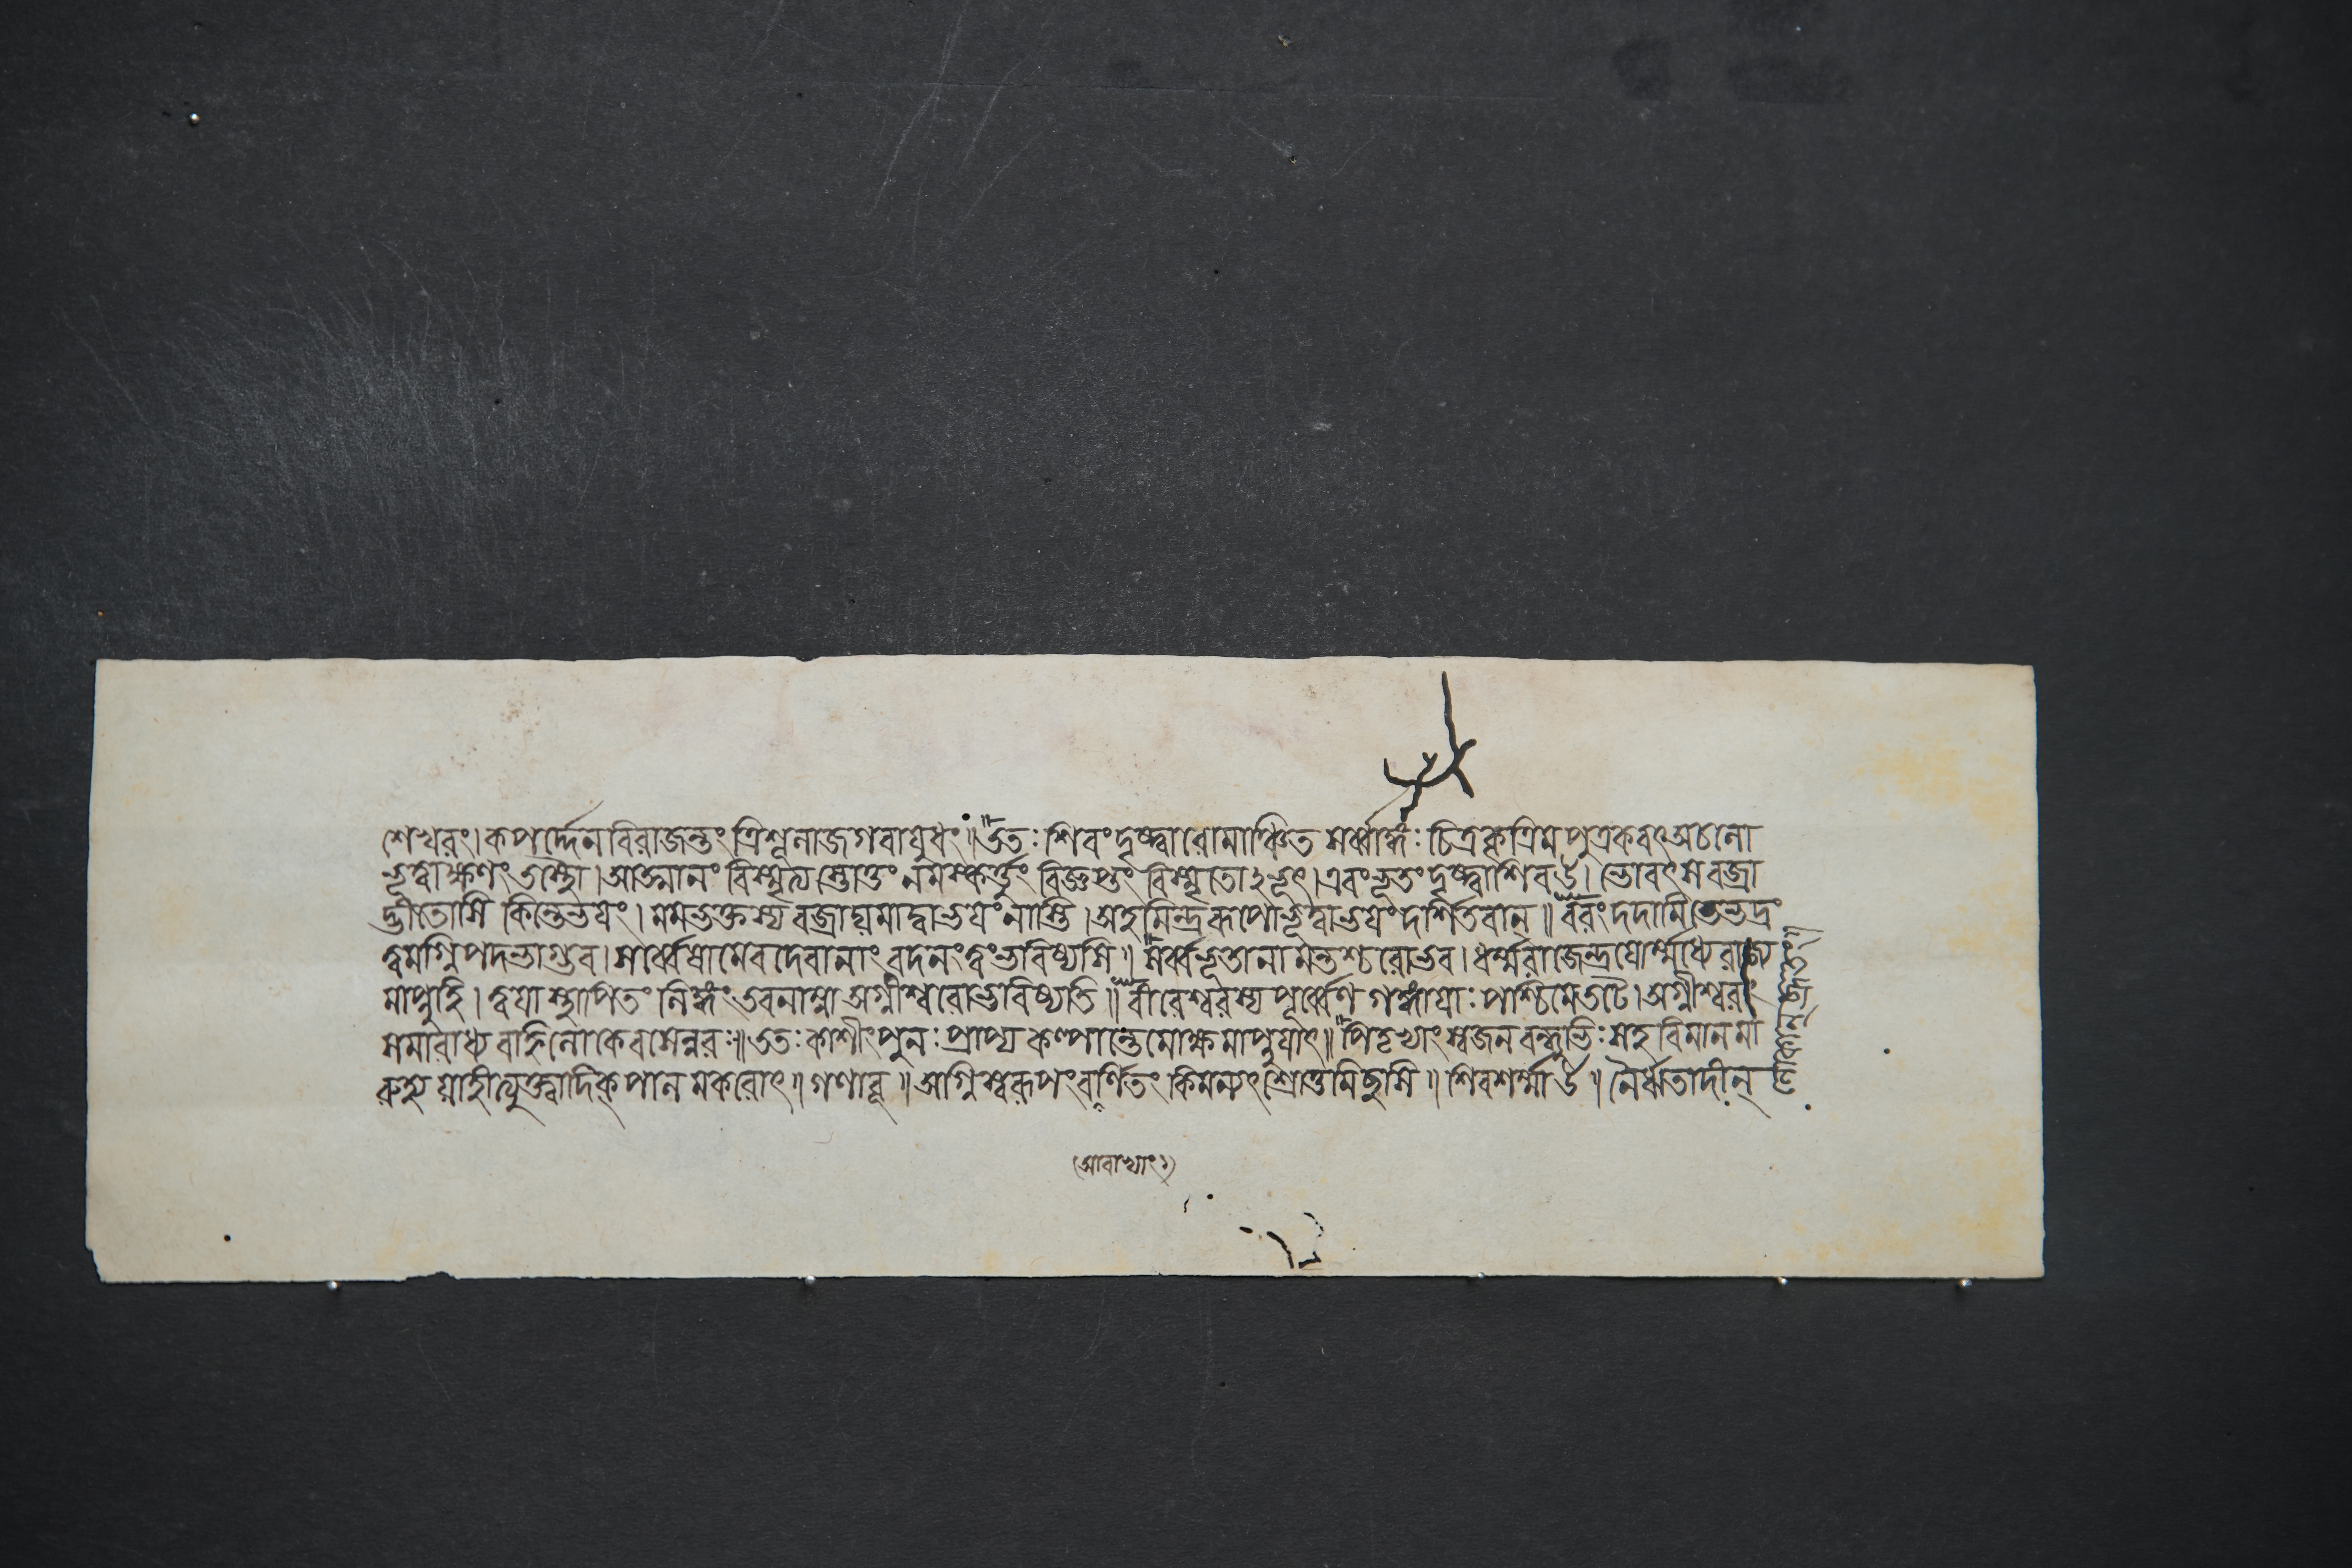 শেখরং। কপর্দ্দেনবিরাজন্তং ত্রিশূলাজগবায়ুধং॥ ততঃ শিবং দৃষ্ট্বা রোমাঞ্চিত সর্ব্বাঙ্গঃ চিত্রকৃত্রিমপুত্রকবৎ অচলো
ভূত্বা ক্ষণং তস্থৌ। আত্মানং বিস্মৃত্য স্তোতুং নমস্কর্ত্তুং বিজ্ঞপ্তুং বিস্মৃতোঽভূৎ। এবংভূতং দৃষ্ট্বা শিব উ। ভোবৎস বজ্রা
দ্ভীতোসি কিন্তেভয়ং। মমভক্তস্য বজ্রাদ্যমাদ্বাভয়ং নাস্তি। অহমিন্দ্ররূপোভূত্বাভয়ং দর্শিতবান্॥ বরং দদামি তেভদ্রং
ত্বমগ্নিপদভাগ্ভব। সর্ব্বেষামেবদেবানাং বদনং ত্বংভবিষ্যসি॥ সর্ব্বভূতানামন্তশ্চরোভব। ধর্ম্মরাজেন্দ্রয়োর্ম্মধ্যে রাজ্য
মাপ্নুহি। ত্বয়া স্থাপিতং লিঙ্গং তবনাম্না অগ্নীশ্বরোভবিষ্যতি॥ বীরেশ্বরস্য পূর্ব্বেণ গঙ্গায়াঃ পশ্চিমেতটে। অগ্নীশ্বরং
সমারাধ্য বহ্নিলোকেবসেন্নরঃ॥ ততঃ কাশীং পুনঃ প্রাপ্য কল্পান্তেমোক্ষমাপ্নুয়াৎ॥ পিতৃভ্যাং স্বজনবন্ধুভিঃ সহ বিমানমা
রুহ্য যাহীত্যুক্ত্বা দিক্পালমকরোৎ॥ গণাবূ॥ অগ্নিস্বরূপং বর্ণিতং কিমন্যৎ শ্রোতুমিচ্ছসি॥ শিবশর্ম্মা উ॥ নৈর্ঋতাদীন্
(আবাভ্যাং)